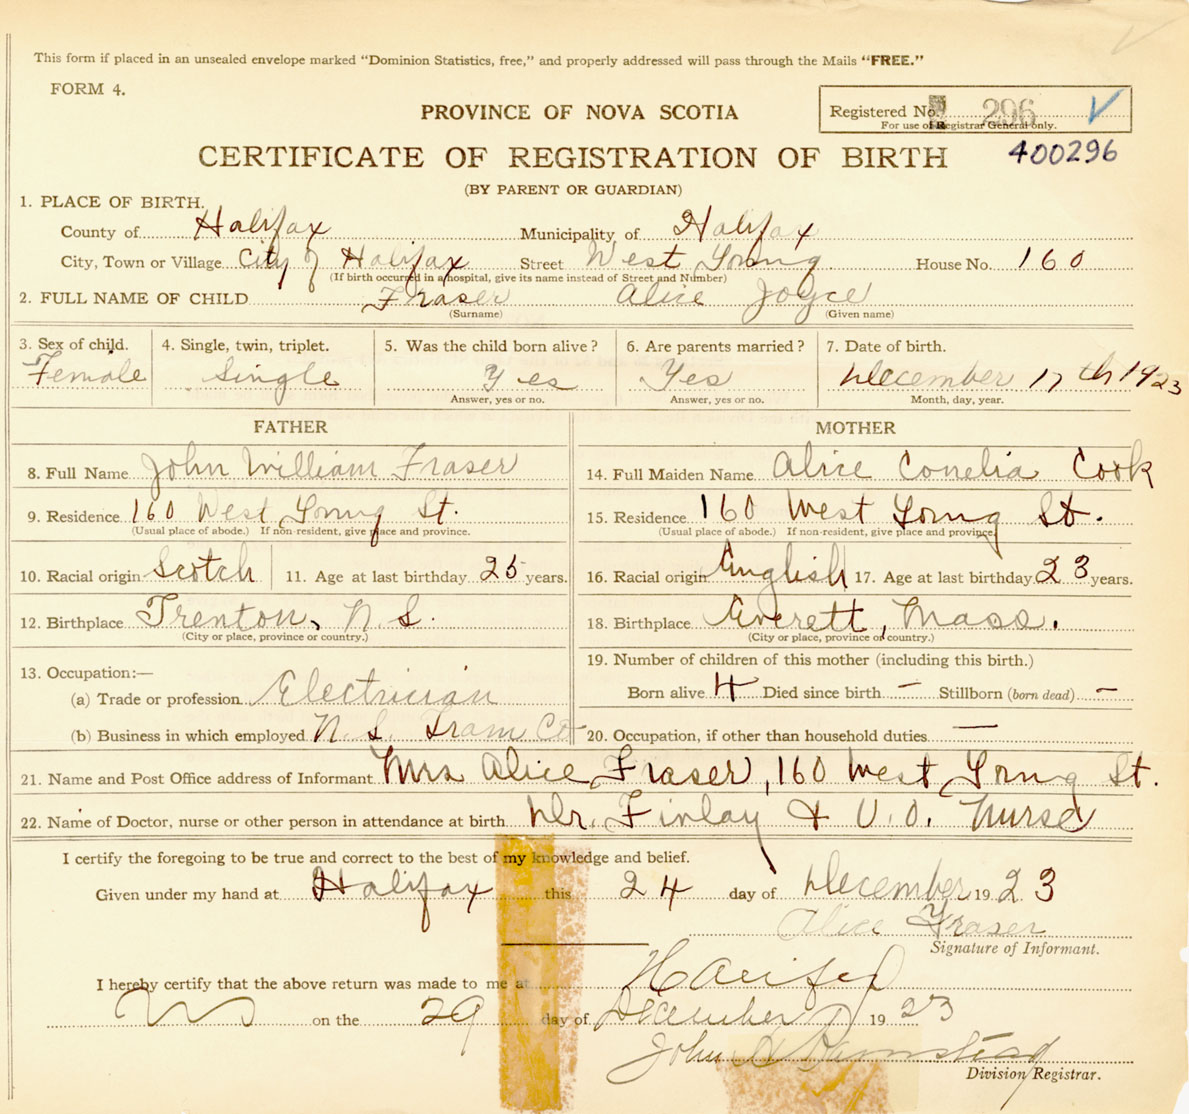 This form if placed in an unsealed envelope marked "Dominion Statistics, free," and properly addressed will pass through the Mails "FREE."
FORM 4.
PROVINCE OF NOVA SCOTIA
Registered No. 296
For use of Registrar General only.
CERTIFICATE OF REGISTRATION OF BIRTH 400296
(BY PARENT OR GUARDIAN)
1. PLACE OF BIRTH.
County of Halifax Municipality of Halifax
City, Town or Village City of Halifax Street West Young House No. 160
(If birth occurred in a hospital, give its name instead of Street and Number)
2. FULL NAME OF CHILD Fraser Alice Joyce
(Surname) (Given name)
3. Sex of child. 4. Single, twin, triplet. 5. Was the child born alive? 6. Are parents married? 7. Date of birth.
Female Single Yes Yes December 17th 1923
Answer, yes or no. Answer, yes or no. Month, day, year.
FATHER MOTHER
8. Full Name John William Fraser 14. Full Maiden Name Alice Conelia Cook
9. Residence 160 West Young St. 15. Residence 160 West Young St.
(Usual place of abode.) If non-resident, give place and province. (Usual place of abode.) If non-resident, give place and province.
10. Racial origin Scotch 11. Age at last birthday 25 years. 16. Racial origin English 17. Age at last birthday 23 years.
12. Birthplace Trenton, N.S. 18. Birthplace Everett, Mass.
(City or place, province or country.) (City or place, province or country.)
13. Occupation:— 19. Number of children of this mother (including this birth.)
(a) Trade or profession Electrician Born alive 4 Died since birth — Stillborn (born dead) —
(b) Business in which employed N.S. Tram Co 20. Occupation, if other than household duties —
21. Name and Post Office address of Informant Mrs Alice Fraser, 160 West Young St.
22. Name of Doctor, nurse or other person in attendance at birth Dr. Finlay + V.O. Nurse
I certify the foregoing to be true and correct to the best of my knowledge and belief.
Given under my hand at Halifax this 24 day of December 1923
Alice Fraser
Signature of Informant.
I hereby certify that the above return was made to me at Halifax
NS on the 29 day of December 1923
John
Division Registrar.